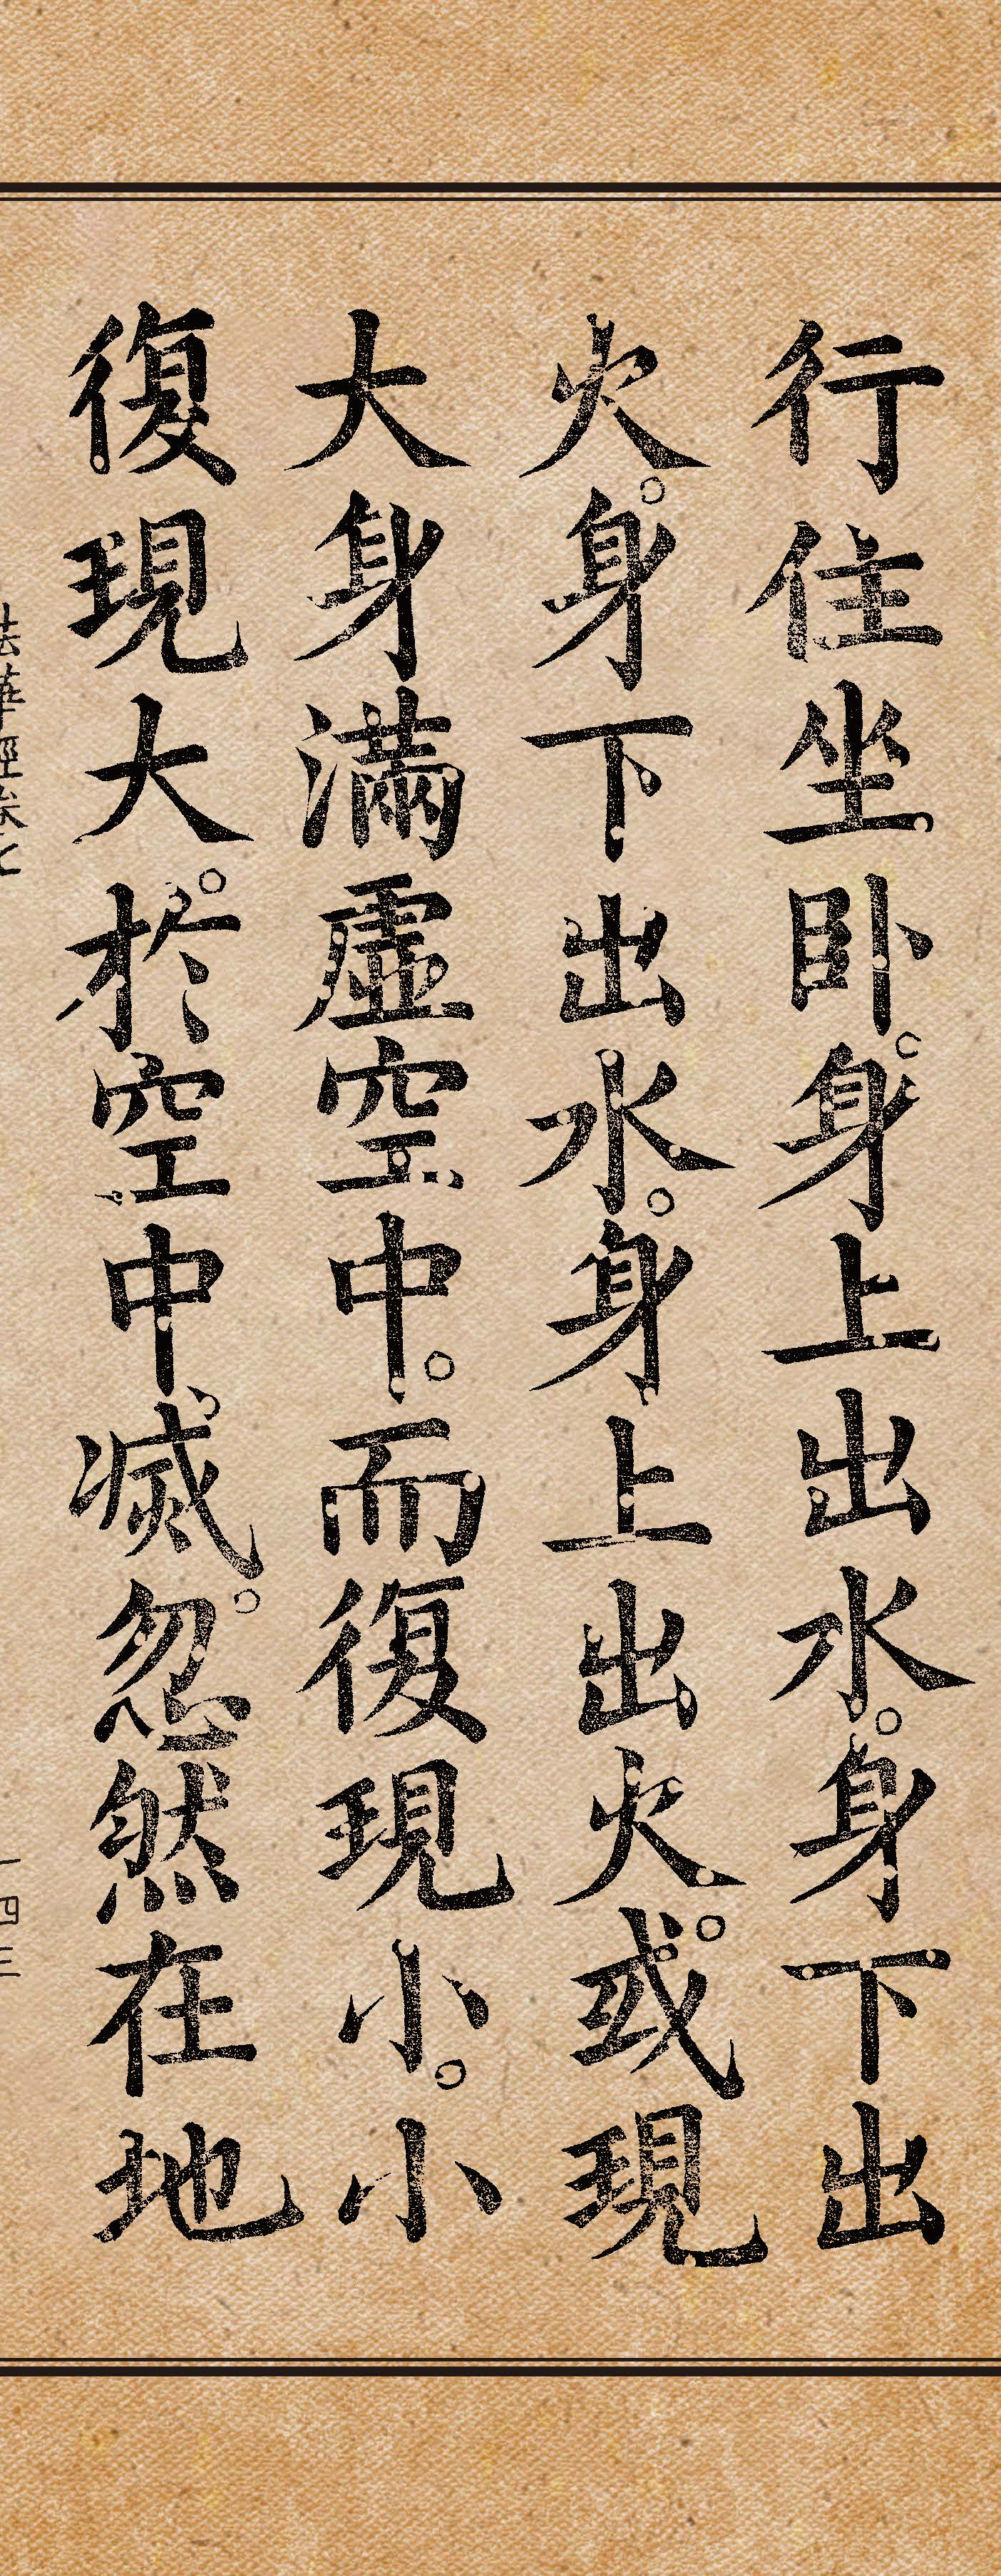 行住坐卧。身上出水。身下出
火。身下出水。身上出火。或現
大身滿虛空中。而復現小。小
復現大。於空中滅。忽然在地
法華經卷七
一四三